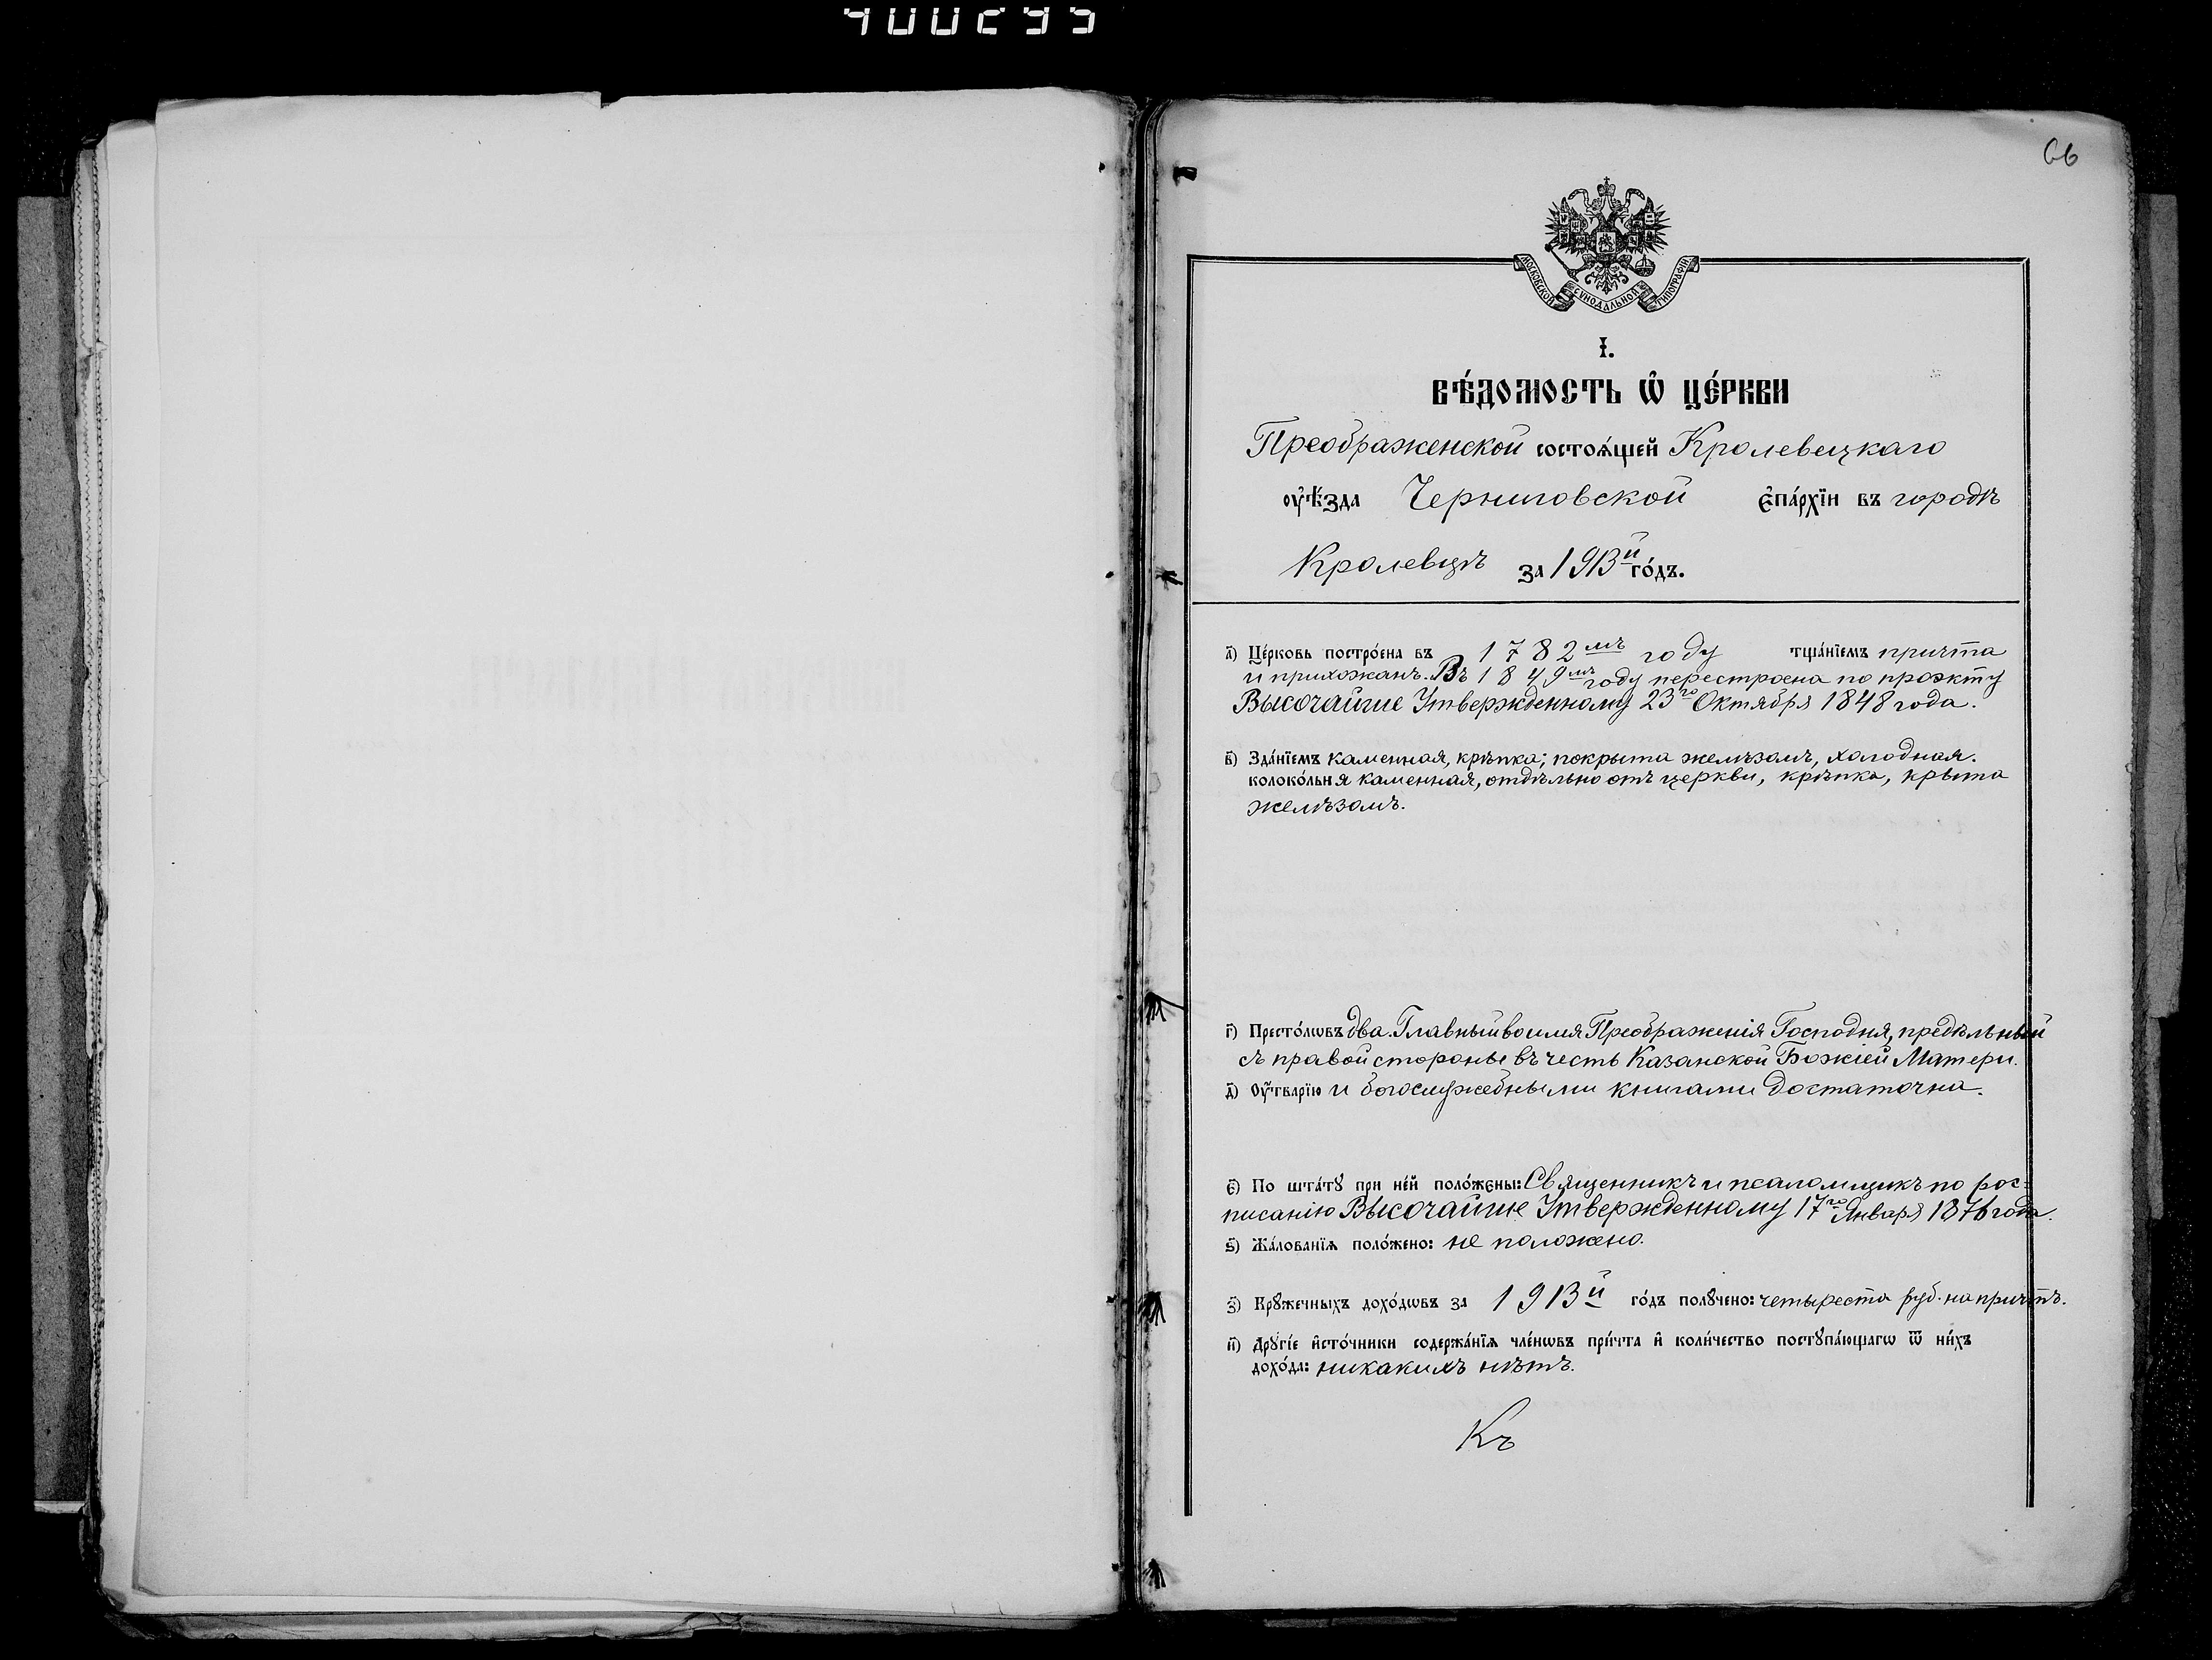 66
МОСКОВСКОЙ СУНОДАЛЬНОЙ ТИПОГРАФІИ
І.
ВѢ́ДОМОСТЬ Ѡ҆ ЦЕ́РКВИ
Преображенской состоѧ́щей Кролевецкаго
ᲂу҆ѣ́зда Черниговской є҆па́рхїи въ городѣ
Кролевцѣ за 1913й го́дъ.
а҃) Це́рковь постро́ена въ 1782мъ году тща́нїемъ причта
и прихожанъ. Въ 1849мъ году перестроена по проэкту
Высочайше Утвержденному 23го Октября 1848 года.
в҃) Зда́нїемъ каменная, крѣпка; покрыта желѣзомъ, холодная.
колоко́льня каменная, отдѣльно отъ церкви, крѣпка, крыта
желѣзомъ.
г҃) Престо́лѡвъ два. Главный во имя Преображенія Господня, предѣльный
съ правой стороны въ честь Казанской Божіей Матери.
д҃) Оу҆́тварїю и богослужебными книгами достаточна.
є҃) По шта́тꙋ при не́й поло́жєны: Священникъ и псаломщикъ по рос=
писанію Высочайше Утвержденному 17го Января 1876 года.
ѕ҃) Жа́лованїѧ поло́жено: не положено.
з҃) Крꙋ́жечныхъ дохо́дѡвъ за 1913й го́дъ полꙋ́чено: четыреста руб. на причтъ.
и҃) Дрꙋгі́е и҆сто́чники содержа́нїѧ чле́нѡвъ при́чта и҆ коли́чество постꙋпа́ющагѡ ѿ ни́хъ
дохо́да: никакихъ нѣтъ.
Къ